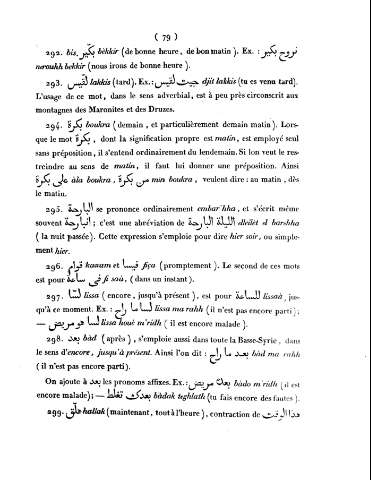 ( 79 )
292. bis. بكّير bèkkir (de bonne heure, de bon matin). Ex. : نروح بكّير
nerouhh bekkir (nous irons de bonne heure).
293. لقّيس lakkis (tard). Ex. : جيت لقّيس djit lakkis (tu es venu tard).
L'usage de ce mot, dans le sens adverbial, est à peu près circonscrit aux
montagnes des Maronites et des Druzes.
294. بكرة boukra (demain, et particulièrement demain matin). Lors-
que le mot بكرة, dont la signification propre est matin, est employé seul
sans préposition, il s'entend ordinairement du lendemain. Si l'on veut le res-
treindre au sens de matin, il faut lui donner une préposition. Ainsi
على بكرة àla boukra, من بكرة min boukra, veulent dire : au matin, dès
le matin.
295. البارحة se prononce ordinairement embar'hha, et s'écrit même
souvent انبارحة; c'est une abréviation de الليلة البارحة elleilet el barehha
(la nuit passée). Cette expression s'emploie pour dire hier soir, ou simple-
ment hier.
296. قوام kaouam et فيسا fiça (promptement). Le second de ces mots
est pour في ساعة fi saà, (dans un instant).
297. لسّا lissa (encore, jusqu'à présent), est pour للساعة lissaà, jus-
qu'à ce moment. Ex. : لسّا ما راح lissa ma rahh (il n'est pas encore parti);
— لسّا هو مريض lissa houé m'ridh (il est encore malade).
298. بعد bàd (après), s'emploie aussi dans toute la Basse-Syrie, dans
le sens d'encore, jusqu'à présent. Ainsi l'on dit : بعد ما راح bàd ma rahh
(il n'est pas encore parti).
On ajoute à بعد les pronoms affixes. Ex. : بعده مريض bàdo m'ridh (il est
encore malade); — بعدك تغلط bàdak teghlath (tu fais encore des fautes).
299. هلّق hallak (maintenant, tout à l'heure), contraction de هذا الوقت